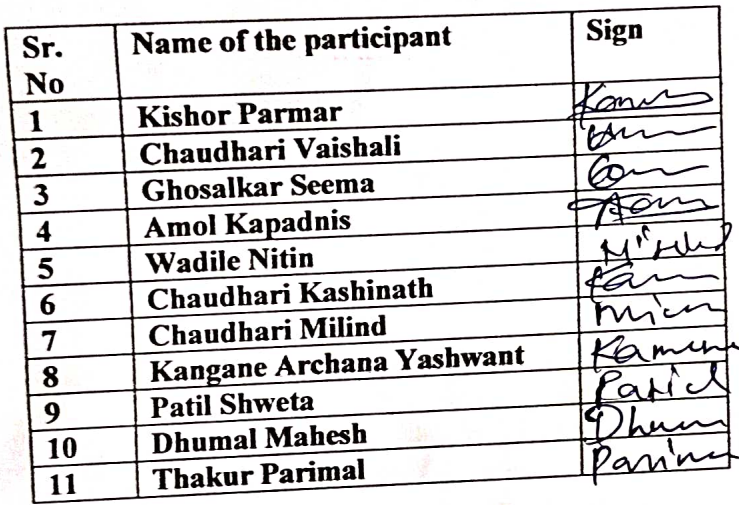 Sr. No Name of the participant Sign
1 Kishor Parmar
2 Chaudhari Vaishali
3 Ghosalkar Seema
4 Amol Kapadnis
5 Wadile Nitin
6 Chaudhari Kashinath
7 Chaudhari Milind
8 Kangane Archana Yashwant
9 Patil Shweta Patil
10 Dhumal Mahesh
11 Thakur Parimal